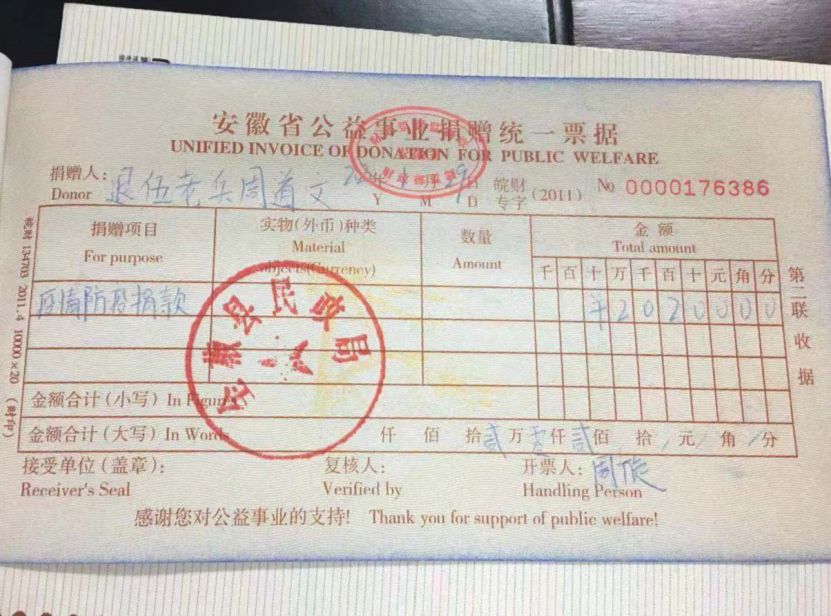 安徽省公益事业捐赠统一票据
UNIFIED INVOICE OF DONATION FOR PUBLIC WELFARE
捐赠人: 退伍老兵周道文 年 月29日 皖财 专字 (2011) № 0000176386
Donor Y M D
捐赠项目 实物(外币)种类 数量 金额
For purpose Material objects(Currency) Amount Total amount
千 百 十 万 千 百 十 元 角 分
疫情防疫捐款 ¥ 2 0 2 0 0 0 0
金额合计(小写) In Figure
金额合计(大写) In Words 仟 佰 拾 贰 万 零 仟 贰 佰 拾 元 角 分
接受单位(盖章): 复核人: 开票人: 周俊
Receiver's Seal Verified by Handling Person
感谢您对公益事业的支持! Thank you for support of public welfare!
第二联 收据
皖财 134703 2011.4 10000×20 (财印)
县民政局